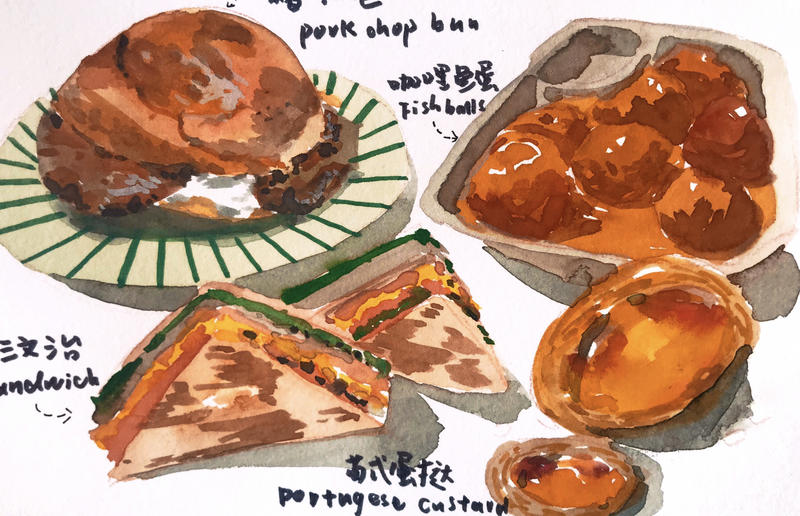 pork chop bun
咖哩魚蛋
Fishballs
三文治
andwich
葡式蛋挞
portugese custard